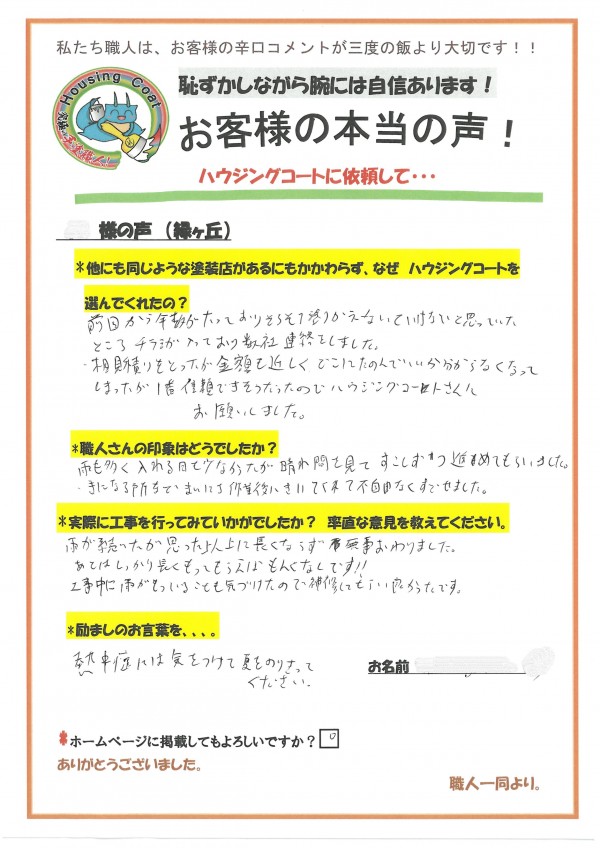 私たち職人は、お客様の辛口コメントが三度の飯より大切です！！
Housing Coat
恥ずかしながら腕には自信あります！
お客様の本当の声！
ハウジングコートに依頼して・・・
様の声 （緑ヶ丘）
*他にも同じような塗装店があるにもかかわらず、なぜ ハウジングコートを
選んでくれたの？
前回から年数がたっておりそろそろ塗りかえないといけないと思っていた
ところ チラシが入っており数社連絡をしました。
・相見積りをとったが金額も近しく どこにたのんでいいか分からなくなって
しまったが1番信頼できそうだったので ハウジングコートさんに
お願いしました。
*職人さんの印象はどうでしたか？
雨も多く 入れる日も少なかったが 晴れ間を見て すこしずつ 進めてもらいました。
・きになる所を 作業後にきいてくれて不自由なくすごせました。
*実際に工事を行ってみていかがでしたか？ 率直な意見を教えてください。
雨が続いたが思った以上に長くならず 無事おわりました。
あとはしっかり長くもってもらえばもんくなしです!!
工事中に雨がもっていることも気づけたので補修してもらい良かったです。
*励ましのお言葉を、、、。
熱中症には気をつけて夏をのりきって
ください。
お名前
*ホームページに掲載してもよろしいですか？
ありがとうございました。
職人一同より。